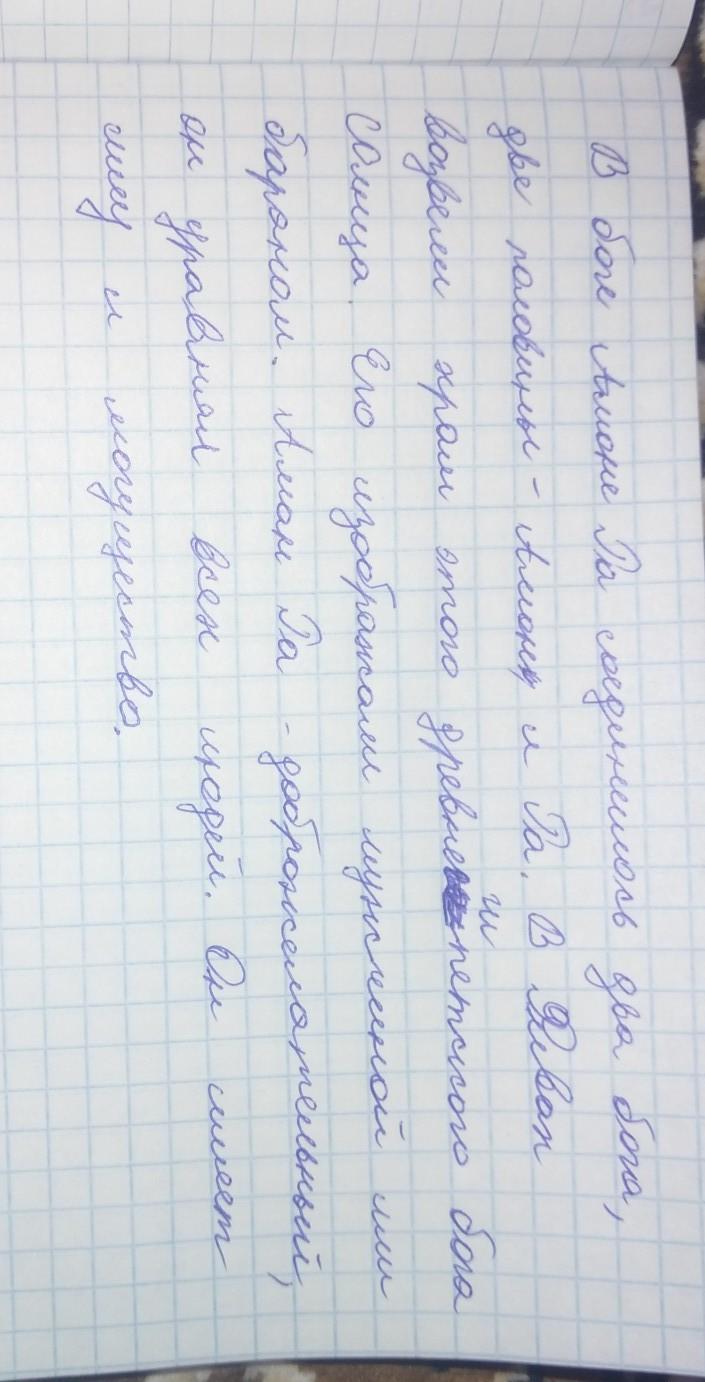 В боге Амоне Ра соединилось два бога,
две половины - Амон и Ра. В Фивах
возвели храм этого древнегипетского бога
Солнца. Его изображали мужчиной или
бараном. Аман Ра - доброжелательный,
он уравнял всех людей. Он имеет
силу и могущество.